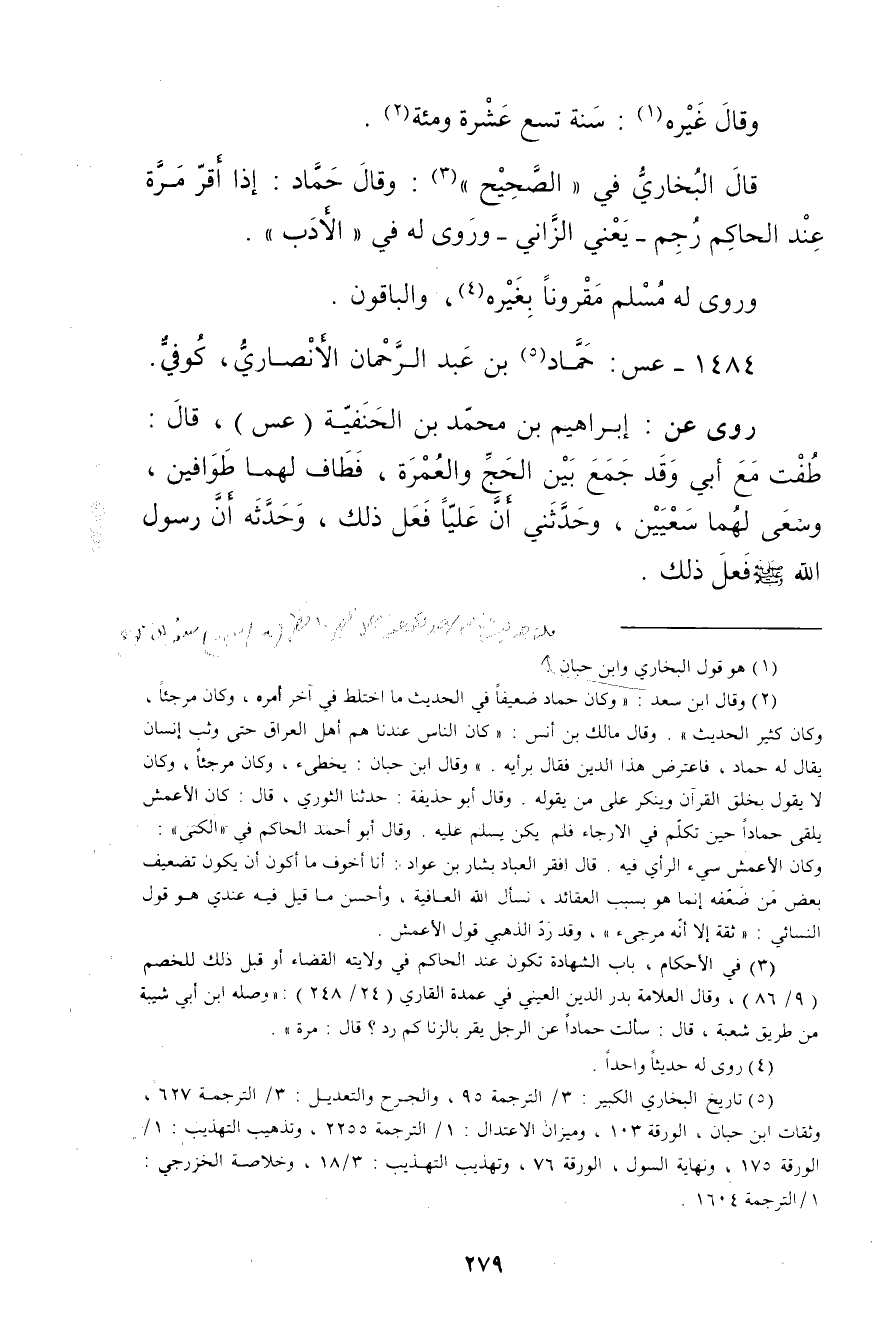 وقالَ غَيْره(١) : سَنة تسع عَشْرة ومئة(٢) .
قالَ البُخاريُّ في « الصَّحِيْح »(٣) : وقالَ حَمَّاد : إذا أَقرّ مَـرَّة
عِنْد الحاكِم رُجِم ـ يَعْني الزَّاني ـ ورَوى له في « الأَدَب » .
وروى له مُسْلم مَقْروناً بِغَيْره(٤) ، والباقون .
١٤٨٤ ـ عس: حَمَّـاد(٥) بن عَبد الـرَّحْمان الأَنْصـاريُّ، كُوفيٌّ.
روى عن : إبـراهيم بن محمّد بن الحَنَفيّـة ( عس ) ، قالَ :
طُفْت مَعَ أبي وَقَد جَمَعَ بَيْن الحَجِّ والعُمْرَة ، فَطَاف لهمـا طَوَافين ،
وسَعَى لهُما سَعْيَيْن ، وحَدَّثَني أَنَّ عَليّاً فَعَل ذلك ، وَحَدَّثَه أَنَّ رسول
الله ﷺ فَعلَ ذلك .
(١) هو قول البخاري وابن حبان .
(٢) وقال ابن سعد : « وكان حماد ضعيفاً في الحديث ما اختلط في آخر أمره ، وكان مرجئاً ،
وكان كثير الحديث » . وقال مالك بن أنس : « كان الناس عندنا هم أهل العراق حتى وثب إنسان
يقال له حماد ، فاعترض هذا الدين فقال برأيه . » وقال ابن حبان : يخطىء ، وكان مرجئاً ، وكان
لا يقول بخلق القرآن وينكر على من يقوله . وقال أبو حذيفة : حدثنا الثوري ، قال : كان الأعمش
يلقى حماداً حين تكلّم في الارجاء فلم يكن يسلم عليه . وقال أبو أحمد الحاكم في «الكنى» :
وكان الأعمش سيء الرأي فيه . قال افقر العباد بشار بن عواد : أنا أخوف ما أكون أن يكون تضعيف
بعض مَن ضَعّفه إنما هو بسبب العقائد ، نسأل الله العـافية ، وأحسن مـا قيل فيـه عندي هـو قول
النسائي : « ثقة إلا أنّه مرجىء » ، وقد رَدّ الذهبي قول الأعمش .
(٣) في الأحكام ، باب الشهادة تكون عند الحاكم في ولايته القضاء أو قبل ذلك للخصم
( ٩/ ٨٦ ) ، وقال العلامة بدر الدين العيني في عمدة القاري ( ٢٤/ ٢٤٨ ) : « وصله ابن أبي شيبة
من طريق شعبة ، قال : سألت حماداً عن الرجل يقر بالزنا كم رد ؟ قال : مرة » .
(٤) روى له حديثاً واحداً .
(٥) تاريخ البخاري الكبير : ٣/ الترجمة ٩٥ ، والجرح والتعديـل : ٣/ الترجمـة ٦٢٧ ،
وثقات ابن حبان ، الورقة ١٠٣ ، وميزان الاعتدال : ١/ الترجمة ٢٢٥٥ ، وتذهيب التهذيب : ١/
الورقة ١٧٥ ، ونهاية السول ، الورقة ٧٦ ، وتهذيب التهـذيب : ١٨/٣ ، وخلاصـة الخزرجي :
١/ الترجمة ١٦٠٤ .
٢٧٩